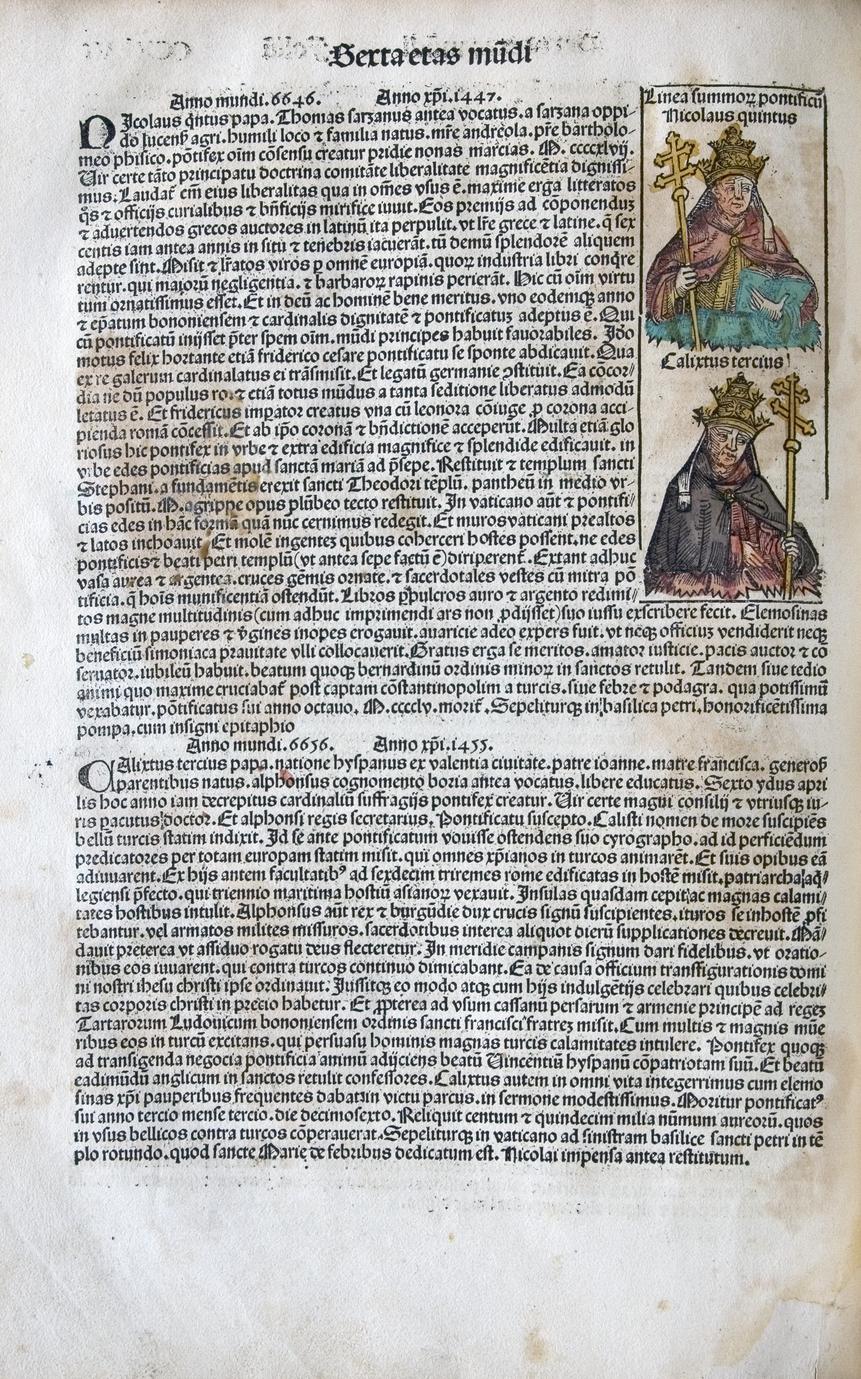 Sexta etas mūdi
Anno mundi.6646. Anno xp̄i.1447.
Linea summoꝝ pontificū
Nicolaus quintus
NIcolaus q̄ntus papa. Thomas sarzanus antea vocatus. a sarzana oppi-
do lucens̄ agri. humili loco ⁊ familia natus. mr̄e andreola. pr̄e bartholo-
meo phisico. pōtifex oīm cōsensu creatur pridie nonas marcias. M. ccccxlvij.
Uir certe tāto principatu doctrina comitāte liberalitate magnificētia dignissi-
mus. Laudat̄ em̄ eius liberalitas qua in om̄es vsus ē. maxime erga litteratos
q̄s ⁊ officijs curialibus ⁊ bn̄ficijs mirifice iuuit. Eos premijs ad coponenduꝫ
⁊ aduertendos grecos auctores in latinū ita perpulit. vt lr̄e grece ⁊ latine. q̄ sex
centis iam antea annis in situ ⁊ tenebris iacuerāt. tū demū splendorē aliquem
adepte sint. Misit ⁊ lr̄atos viros p̱ omnē europiā. quoꝝ industria libri conq̄re
rentur. qui maioꝝ negligentia. ⁊ barbaroꝝ rapinis perierāt. Hic cū oīm virtu
tum ornatissimus esset. Et in deū ac hominē bene meritus. vno eodemqꝫ anno
⁊ ep̄atum bononiensem ⁊ cardinalis dignitatē ⁊ pontificatuꝫ adeptus ē. Qui
cū pontificatū inijsset p̄ter spem oīm. mūdi principes habuit fauorabiles. Ido
motus felix hortante etiā friderico cesare pontificatu se sponte abdicauit. Qua
ex re galerum cardinalatus ei trāsmisit. Et legatū germanie ꝯstituit. Ea cōcor-
dia ne dū populus ro. ⁊ etiā totus mūdus a tanta seditione liberatus admodū
letatus ē. Et fridericus impator creatus vna cū leonora cōiuge ꝓ corona acci-
pienda romā cōcessit. Et ab ip̄o coronā ⁊ bn̄dictionē acceperūt. Multa etiā glo
riosus hic pontifex in vrbe ⁊ extra edificia magnifice ⁊ splendide edificauit. in
vrbe edes pontificias apud sanctā mariā ad p̄sepe. Restituit ⁊ templum sancti
Stephani. a fundamētis erexit sancti Theodori tēplū. pantheū in medio vr-
bis positū. M. agrippe opus plūbeo tecto restituit. In vaticano aūt ⁊ pontifi-
cias edes in hāc formā quā nūc cernimus redegit. Et muros vaticani prealtos
⁊ latos inchoauit. Et molē ingenteꝫ quibus coherceri hostes possent. ne edes
pontificis ⁊ beati petri templū (vt antea sepe factū ē) diriperent̄. Extant adhuc
vasa aurea ⁊ argentea. cruces gēmis ornate. ⁊ sacerdotales vestes cū mitra pō
tificia. q̄ hoīs munificentiā ostendūt. Libros p̱pulcros auro ⁊ argento redimi-
Calixtus tercius
tos magne multitudinis (cum adhuc imprimendi ars non ꝓdijsset) suo iussu exscribere fecit. Elemosinas
multas in pauperes ⁊ v̄gines inopes erogauit. auaricie adeo expers fuit. vt neqꝫ officiuꝫ vendiderit neqꝫ
beneficiū simoniaca prauitate vlli collocauerit. Gratus erga se meritos. amator iusticie. pacis auctor ⁊ cō
seruator. iubileū habuit. beatum quoqꝫ bernardinū ordinis minoꝝ in sanctos retulit. Tandem siue tedio
animi quo maxime cruciabat̄ post captam cōstantinopolim a turcis. siue febre ⁊ podagra. qua potissimū
vexabatur. pōtificatus sui anno octauo. M.cccclv. morit̄. Sepeliturqꝫ in basilica petri. honorificētissima
pompa. cum insigni epitaphio
Anno mundi.6656. Anno xp̄i.1455.
CAlixtus tercius papa. natione hyspanus ex valentia ciuitate. patre ioanne. matre francisca. generoß
parentibus natus. alphonsus cognomento boria antea vocatus. libere educatus. Sexto ydus apri
lis hoc anno iam decrepitus cardinaliū suffragijs pontifex creatur. Uir certe magni consilij ⁊ vtriusqꝫ iu-
ris pacutus doctor. Et alphonsi regis secretarius. Pontificatu suscepto. Calisti nomen de more suscipiēs
bellū turcis statim indixit. Id se ante pontificatum vouisse ostendens suo cyrographo. ad id perficiēdum
predicatores per totam europam statim misit. qui omnes xp̄ianos in turcos animarēt. Et suis opibus eā
adiuuarent. Ex hijs antem facultatibꝰ ad sexdecim triremes rome edificatas in hostē misit. patriarcha aq̄-
legiensi p̄fecto. qui triennio maritima hostiū asianoꝝ vexauit. Insulas quasdam cepit ac magnas calami-
tates hostibus intulit. Alphonsus aūt rex ⁊ burgūdie dux crucis signū suscipientes. ituros se in hostē ꝓfi
tebantur. vel armatos milites missuros. sacerdotibus interea aliquot dierū supplicationes decreuit. Mā-
dauit preterea vt assiduo rogatu deus flecteretur. In meridie campanis signum dari fidelibus. vt oratio-
nibus eos iuuarent. qui contra turcos continuo dimicabant. Ea de causa officium transfigurationis domi
ni nostri ihesu christi ipse ordinauit. Iussitqꝫ eo modo atqꝫ cum hijs indulgētijs celebrari quibus celebri-
tas corporis christi in precio habetur. Et ꝓpterea ad vsum cassanū persarum ⁊ armenie principē ad regeꝫ
Tartarorum Ludouicum bononiensem ordinis sancti francisci fratreꝫ misit. Cum multis ⁊ magnis mūe
ribus eos in turcū excitans. qui persuasu hominis magnas turcis calamitates intulere. Pontifex quoqꝫ
ad transigenda negocia pontificia animū adijciens beatū Uincentiū hyspanū cōpatriotam suū. Et beatū
eadimūdū anglicum in sanctos retulit confessores. Calixtus autem in omni vita integerrimus cum elemo
sinas xp̄i pauperibus frequentes dabat. in victu parcus. in sermone modestissimus. Moritur pontificatꝰ
sui anno tercio mense tercio. die decimosexto. Reliquit centum ⁊ quindecim milia nūmum aureorū. quos
in vsus bellicos contra turcos cōperauerat. Sepeliturqꝫ in vaticano ad sinistram basilice sancti petri in tē
plo rotundo. quod sancte Marie de febribus dedicatum est. Nicolai impensa antea restitutum.